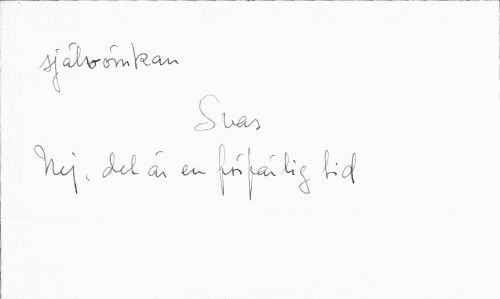 självömkan
Svar
Nej, det är en förfärlig tid